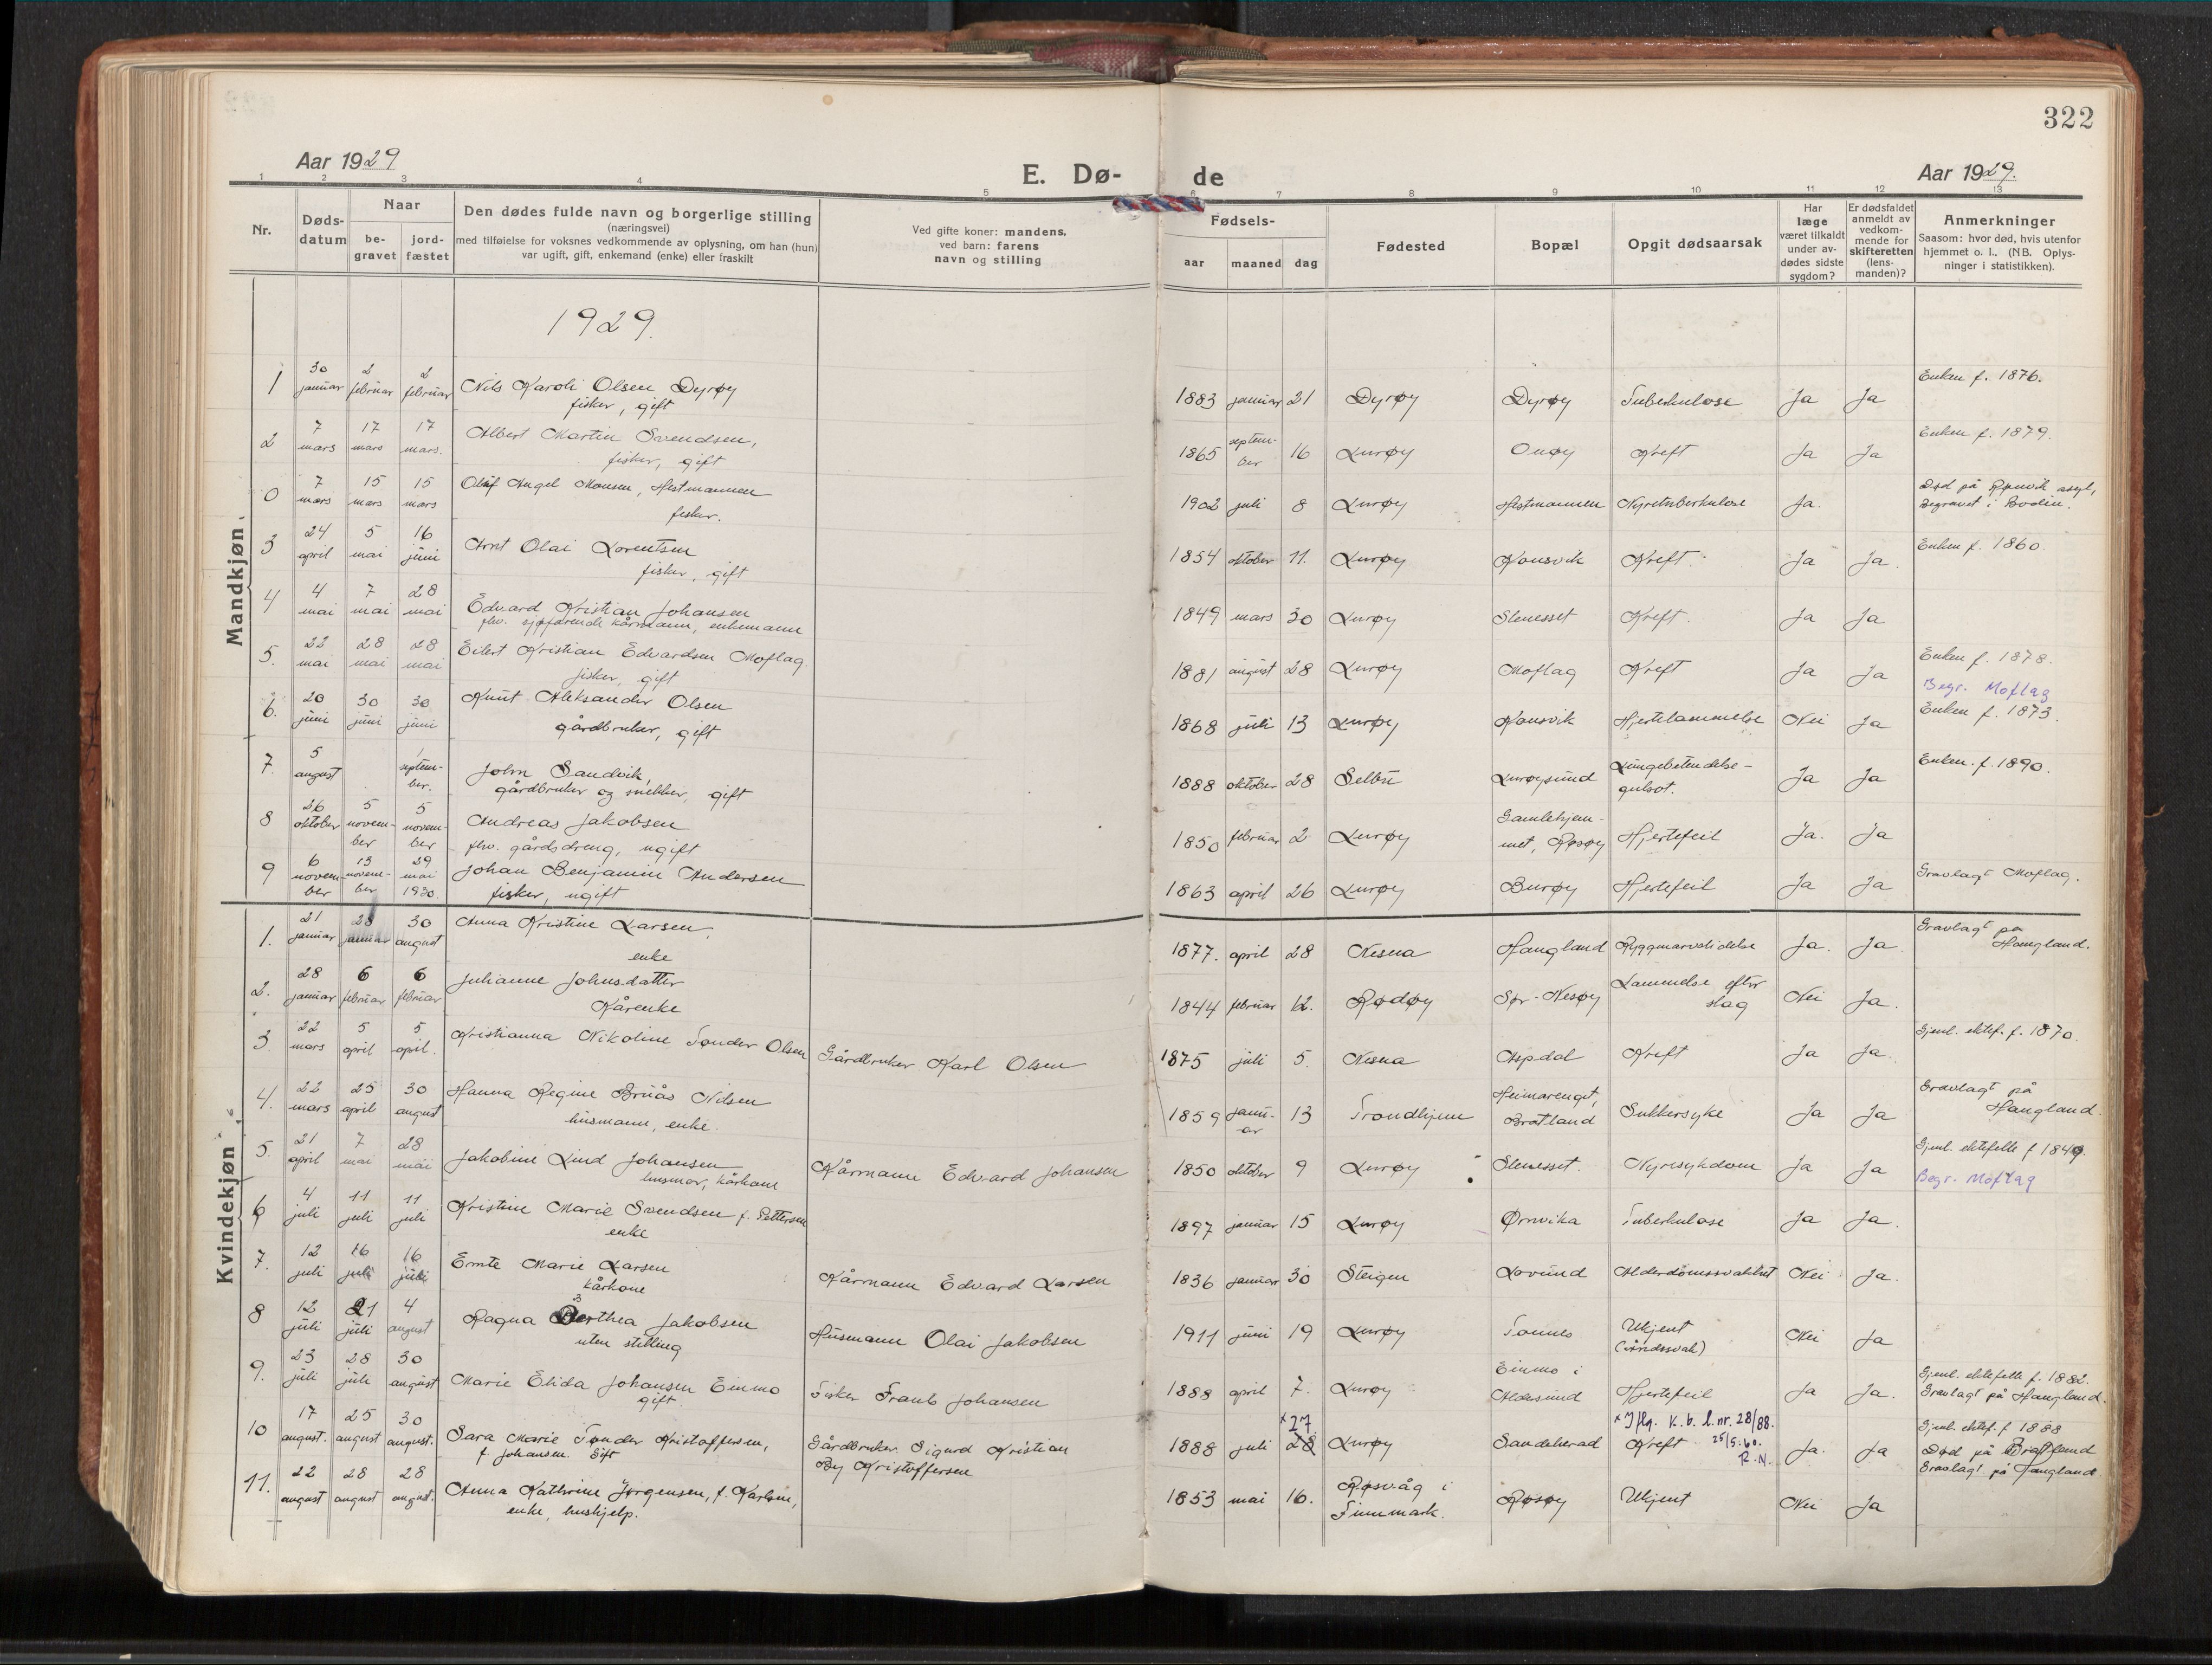 322
Aar 1929
E. Dø-
de
Aar 1929.
1 2 3 4 5 6 7 8 9 10 11 12 13
Nr.
Døds-
datum
Naar
be-
gravet
jord-
fæstet
Den dødes fulde navn og borgerlige stilling
(næringsvei)
med tilføielse for voksnes vedkommende av oplysning, om han (hun)
var ugift, gift, enkemand (enke) eller fraskilt
Ved gifte koner: mandens,
ved barn: farens
navn og stilling
Fødsels-
aar maaned dag
Fødested
Bopæl
Opgit dødsaarsak
Har
læge
været tilkaldt
under av-
dødes sidste
sygdom?
Er dødsfaldet
anmeldt av
vedkom-
mende for
skifteretten
(lens-
manden)?
Anmerkninger
Saasom: hvor død, hvis utenfor
hjemmet o. l., (NB. Oplys-
ninger i statistikken).
1929.
Mandkjøn.
1 30 januar 2 februar 2 februar Nils Karoli Olsen Dyrøy
fisker, gift
1883 januar 21 Dyrøy Dyrøy Tuberkulose Ja Ja Enken f. 1876.
2 7 mars 17 mars 17 mars. Albert Martin Svendsen,
fisker, gift
1865 septem-
ber 16 Lurøy Onøy Kreft Ja Ja Enken f. 1879.
0 7 mars 15 mars 15 mars Olaf Angel Monsen, Hestmannen
fisker.
1902 juli 8 Lurøy Hestmannen Nyretuberkulose Ja. Død på Rønvik asyl,
Begravet i Bodin.
3 24 april 5 mai 16 juni Arnt Olai Lorentsen
fisker, gift
1854 oktober 11. Lurøy Konsvik Kreft. Ja Ja. Enken f. 1860.
4 4 mai 7 mai 28 mai Edvard Kristian Johansen
fhv. sjøfarende kårmann, enkemann
1849 mars 30 Lurøy Stenesset Kreft. Ja Ja
5. 22 mai 28 mai 28 mai Eilert Kristian Edvardsen Moflag
fisker, gift
1881 august 28 Lurøy Moflag Kreft Ja Ja Enken f. 1878.
Begr. Moflag
6. 20 juni 30 juni 30 juni Knut Aleksander Olsen
gårdbruker, gift
1868 juli 13 Lurøy Konsvik Hjertelammelse Nei Ja Enken f. 1873.
7. 5 august 1 septem-
ber. John Sandvik,
gårdbruker og snekker, gift
1888 oktober 28 Selbu Lurøysund Lungebetendelse-
gulsot. Ja Ja Enken. f. 1890.
8 26 oktober 5 novem-
ber 5 novem-
ber Andreas Jakobsen
fhv. gårdsdreng, ugift
1850 februar 2 Lurøy Gamlehjem-
met, Røsøy Hjertefeil Ja. Ja
9 6 novem-
ber 13 novem-
ber 29 mai 1930. Johan Benjamin Andersen
fisker, ugift
1863 april 26 Lurøy Burøy Hjertefeil Ja Ja Gravlagt Moflag.
Kvindekjøn
1. 21 januar 28 januar 30 august Anna Kristine Larsen,
enke
1877. april 28 Nesna Haugland Ryggmarvslidelse Ja. Ja Gravlagt på
Haugland.
2. 28 januar 6 februar 6 februar Julianne Johnsdatter
Kårenke
1844 februar 12. Rødøy Sør-Nesøy Lammelse efter
slag Nei Ja.
3. 22 mars 5 april 5 april. Kristianna Nikoline Tønder Olsen Gårdbruker Karl Olsen
1875 juli 5. Nesna Aspdal Kreft Ja Ja. Gjenl. ektef. f. 1870.
4. 22 mars 25 april 30 august Hanna Regine Bruås Nilsen
husmann, enke.
1859 janu-
ar 13 Trondhjem Heimarenget,
Bratland Sukkersyke Ja Ja Gravlagt på
Haugland.
5. 21 april 7 mai 28 mai Jakobine Lind Johansen
husmor, kårkone Kårmann Edvard Johansen
1850 oktober 9 Lurøy Stenesset. Nyresykdom Ja Ja Gjenl. ektefelle f 1849.
Begr. Moflag
6 4 juli 11 juli 11 juli Kristine Marie Svendsen f. Pettersen
enke
1897 januar 15 Lurøy Ørnvika Tuberkulose Ja Ja.
7. 12 juli 16 juli 16 juli Ernte Marie Larsen
kårkone Kårmann Edvard Larsen
1836 januar 30 Steigen Lovund Alderdomssvakhet Nei Ja.
8 12 juli 21 juli 4 august Ragna Berthea Jakobsen
uten stilling Husmann Olai Jakobsen
1911 juni 19 Lurøy Tonnes Ukjent
(åndssvak) Nei Ja
9. 23 juli 28 juli 30 august Marie Elida Johansen Einmo
gift. Fisker Frants Johansen
1888 april 7. Lurøy Einmo i
Aldersund Hjertefeil Ja Ja. Gjenl. ektefelle f. 1882.
Gravlagt på Haugland.
10 17 august. 25 august 30 august. Sara Marie Tønder Kristoffersen,
f. Johansen. Gift Gårdbruker Sigurd Kristian
By Kristoffersen
1888 juli 28 x 27 Lurøy Sandskerad Kreft x Iflg. K.b. l.nr. 28/88.
25/5.60.
R.N. Ja. Ja Gjenl. ektef. f 1888
Død på Bratland
Gravlagt på Haugland
11. 22 august 28 august 28 august. Anna Kathrine Jørgensen, f. Karlsen,
enke, hushjelp.
1853 mai 16. Røsvåg i
Finnmark. Røsøy Ukjent Nei Ja